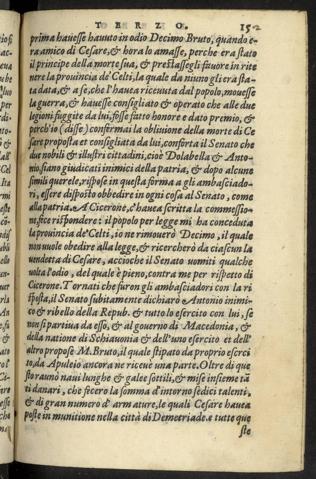 TO ERZO. 152
prima hauesse hauuto in odio Decimo Bruto, quando e-
ra amico di Cesare, & hora lo amasse, perche era stato
il principe della morte sua, & prestassegli fauore in rite
nere la prouincia de' Celti, la quale da niuno gli era sta-
ta data, & a se, che l'hauea riceuuta dal popolo, mouesse
la guerra, & hauesse consigliato & operato che alle due
legioni fuggite da lui, fosse fatto honore e dato premio, &
perch'io (disse) confermai la obliuione della morte di Ce
sare proposta et consigliata da lui, conforta il Senato che
due nobili & illustri cittadini, cioè Dolabella & Anto-
nio siano giudicati inimici della patria, & dopo alcune
simili querele, rispose in questa forma a gli ambasciado-
ri, essere disposto obbedire in ogni cosa al Senato, come
alla patria. A Cicerone, c'hauea scritta la commessio-
ne, fece rispondere: il popolo per legge mi ha conceduta
la prouincia de' Celti, io ne rimouerò Decimo, il quale
non vuole obedire alla legge, & ricercherò da ciascun la
vendetta di Cesare, accioche il Senato uomiti qualche
volta l'odio, del quale è pieno, contra me per rispetto di
Cicerone. Tornati che furon gli ambasciadori con la ri
sposta, il Senato subitamente dichiarò Antonio inimi-
co & ribello della Repub. & tutto lo esercito con lui, se
non si partiua da esso, & al gouerno di Macedonia, &
della natione di Schiauonia & dell'uno esercito et dell'
altro propose M. Bruto, il quale stipato da proprio eserci
to, da Apuleio ancora ne riceuè una parte. Oltre di que
sto raunò naui lunghe & galee sottili, & mise insieme tā
ti danari, che fecero la somma d'intorno sedici talenti,
& di gran numero d' armature, le quali Cesare hauea
poste in munitione nella città di Demetriade. a tutte que
ste